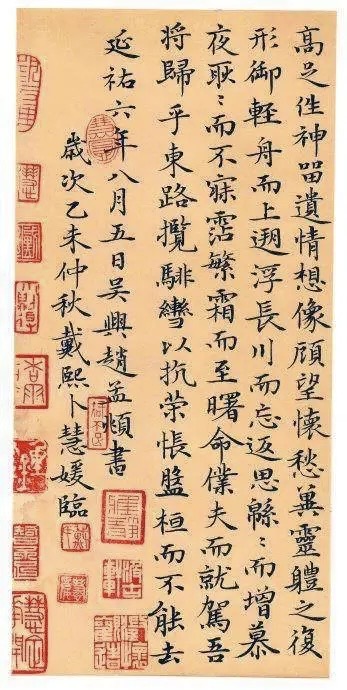 高足往神畱遺情想像顧望懷愁冀靈體之復
形御輕舟而上遡浮長川而忘返思緜〻而增慕
夜耿〻而不寐霑繁霜而至曙命僕夫而就駕吾
將歸乎東路攬騑轡以抗策悵盤桓而不能去
延祐六年八月五日吴興趙孟頫書
歲次乙未仲秋戴熙卜慧媛臨